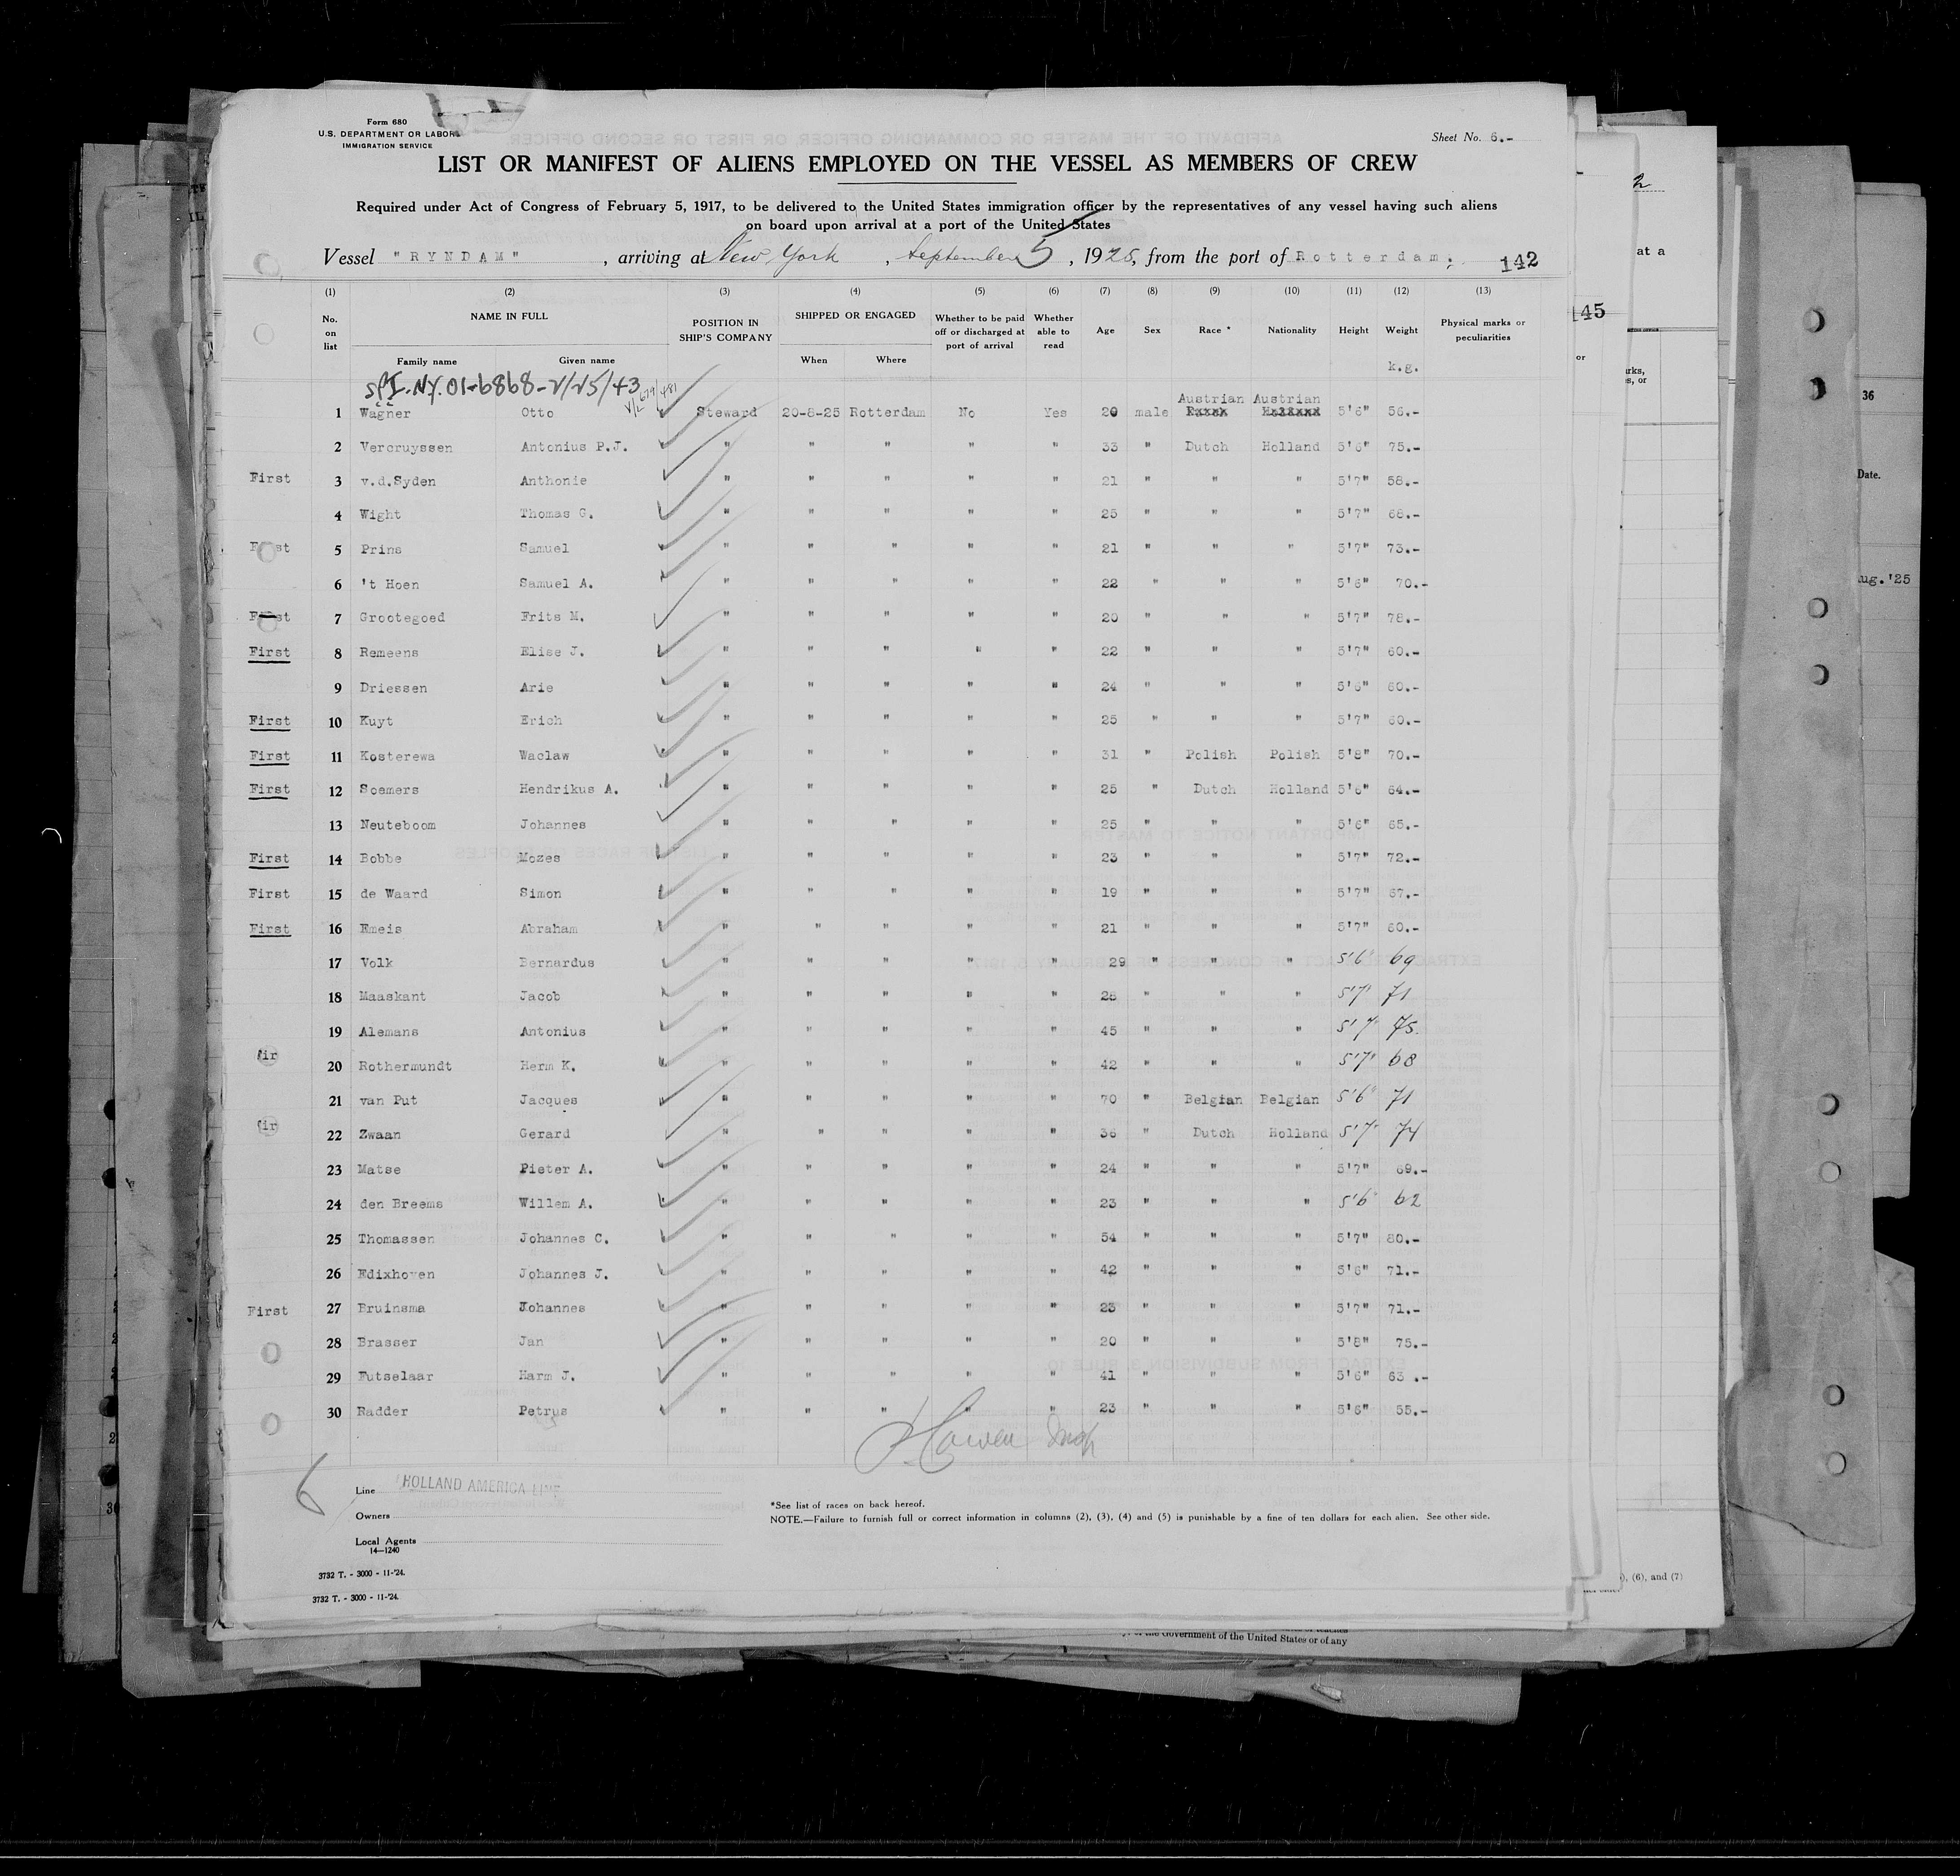 Form 680
U.S. DEPARTMENT OR LABOR
IMMIGRATION SERVICE
Sheet No. 6.-
LIST OR MANIFEST OF ALIENS EMPLOYED ON THE VESSEL AS MEMBERS OF CREW
Required under Act of Congress of February 5, 1917, to be delivered to the United States immigration officer by the representatives of any vessel having such aliens
on board upon arrival at a port of the United States
Vessel "RYNDAM", arriving at New York, September 5, 1925, from the port of Rotterdam; 142
(1) (2) (3) (4) (5) (6) (7) (8) (9) (10) (11) (12) (13)
No. on list NAME IN FULL POSITION IN SHIP'S COMPANY SHIPPED OR ENGAGED Whether to be paid off or discharged at port of arrival Whether able to read Age Sex Race * Nationality Height Weight Physical marks or peculiarities
Family name Given name When Where k.g.
SPI.N.Y.01-6868-2/25/43
1 Wagner Otto Steward 20-8-25 Rotterdam No Yes 20 male Austrian Austrian 5'6" 56.-
2 Vercruyssen Antonius P.J. " " " " " 33 " Dutch Holland 5'6" 75.-
First 3 v.d.Syden Anthonie " " " " " 21 " " " 5'7" 58.-
4 Wight Thomas G. " " " " " 25 " " " 5'7" 68.-
First 5 Prins Samuel " " " " " 21 " " " 5'7" 73.-
6 't Hoen Samuel A. " " " " " 22 " " " 5'6" 70.-
First 7 Grootegoed Frits M. " " " " " 20 " " " 5'7" 78.-
First 8 Remeens Elise J. " " " " " 22 " " " 5'7" 60.-
9 Driessen Arie " " " " " 24 " " " 5'6" 60.-
First 10 Kuyt Erich " " " " " 25 " " " 5'7" 60.-
First 11 Kosterewa Waclaw " " " " " 31 " Polish Polish 5'8" 70.-
First 12 Soemers Hendrikus A. " " " " " 25 " Dutch Holland 5'6" 64.-
13 Neuteboom Johannes " " " " " 25 " " " 5'6" 65.-
First 14 Bobbe Mozes " " " " " 23 " " " 5'7" 72.-
First 15 de Waard Simon " " " " " 19 " " " 5'7" 67.-
First 16 Emeis Abraham " " " " " 21 " " " 5'7" 60.-
17 Volk Bernardus " " " " " 29 " " " 5'6" 69
18 Maaskant Jacob " " " " " 28 " " " 5'7" 71
19 Alemans Antonius " " " " " 45 " " " 5'7" 75.
20 Rothermundt Herm K. " " " " " 42 " " " 5'7" 68
21 van Put Jacques " " " " " 70 " Belgian Belgian 5'6" 71
22 Zwaan Gerard " " " " " 36 " Dutch Holland 5'7" 74
23 Matse Pieter A. " " " " " 24 " " " 5'7" 69.-
24 den Breems Willem A. " " " " " 23 " " " 5'6" 62
25 Thomassen Johannes C. " " " " " 54 " " " 5'7" 80.-
26 Edixhoven Johannes J. " " " " " 42 " " " 5'6" 71.-
First 27 Bruinsma Johannes " " " " " 23 " " " 5'7" 71.-
28 Brasser Jan " " " " " 20 " " " 5'8" 75.-
29 Futselaar Harm J. " " " " " 41 " " " 5'6" 63.-
30 Radder Petrus " " " " " 23 " " " 5'6" 55.-
6
Line HOLLAND AMERICA LINE
Owners
Local Agents
14—1240
*See list of races on back hereof.
NOTE.—Failure to furnish full or correct information in columns (2), (3), (4) and (5) is punishable by a fine of ten dollars for each alien. See other side.
3732 T. - 3000 - 11-'24.
3732 T. - 3000 - 11-'24.
at a
145
or
36
Date.
ug.'25
(6), and (7)
of the Government of the United States or of any